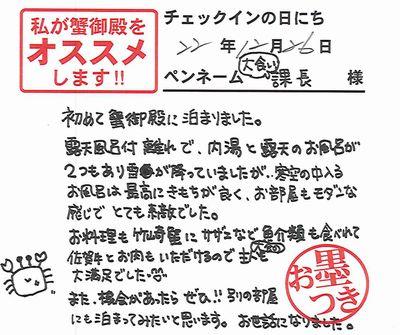 私が蟹御殿を
オススメ
します!!
チェックインの日にち
22年12月26日
ペンネーム 大食い課長 様
初めて蟹御殿に泊まりました。
露天風呂付離れで、内湯と露天のお風呂が
2つもあり雪が降っていましたが、寒空の中入る
お風呂は最高にきもちが良く、お部屋もモダンな
感じでとても素敵でした。
お料理も竹崎蟹にサザエなど魚介類も食べれて
佐賀牛とお肉もいただけるので大食の
大満足でした
また、機会があったらぜひ!!別の部屋
にも泊まってみたいと思います。お世話になりました。
お墨つき